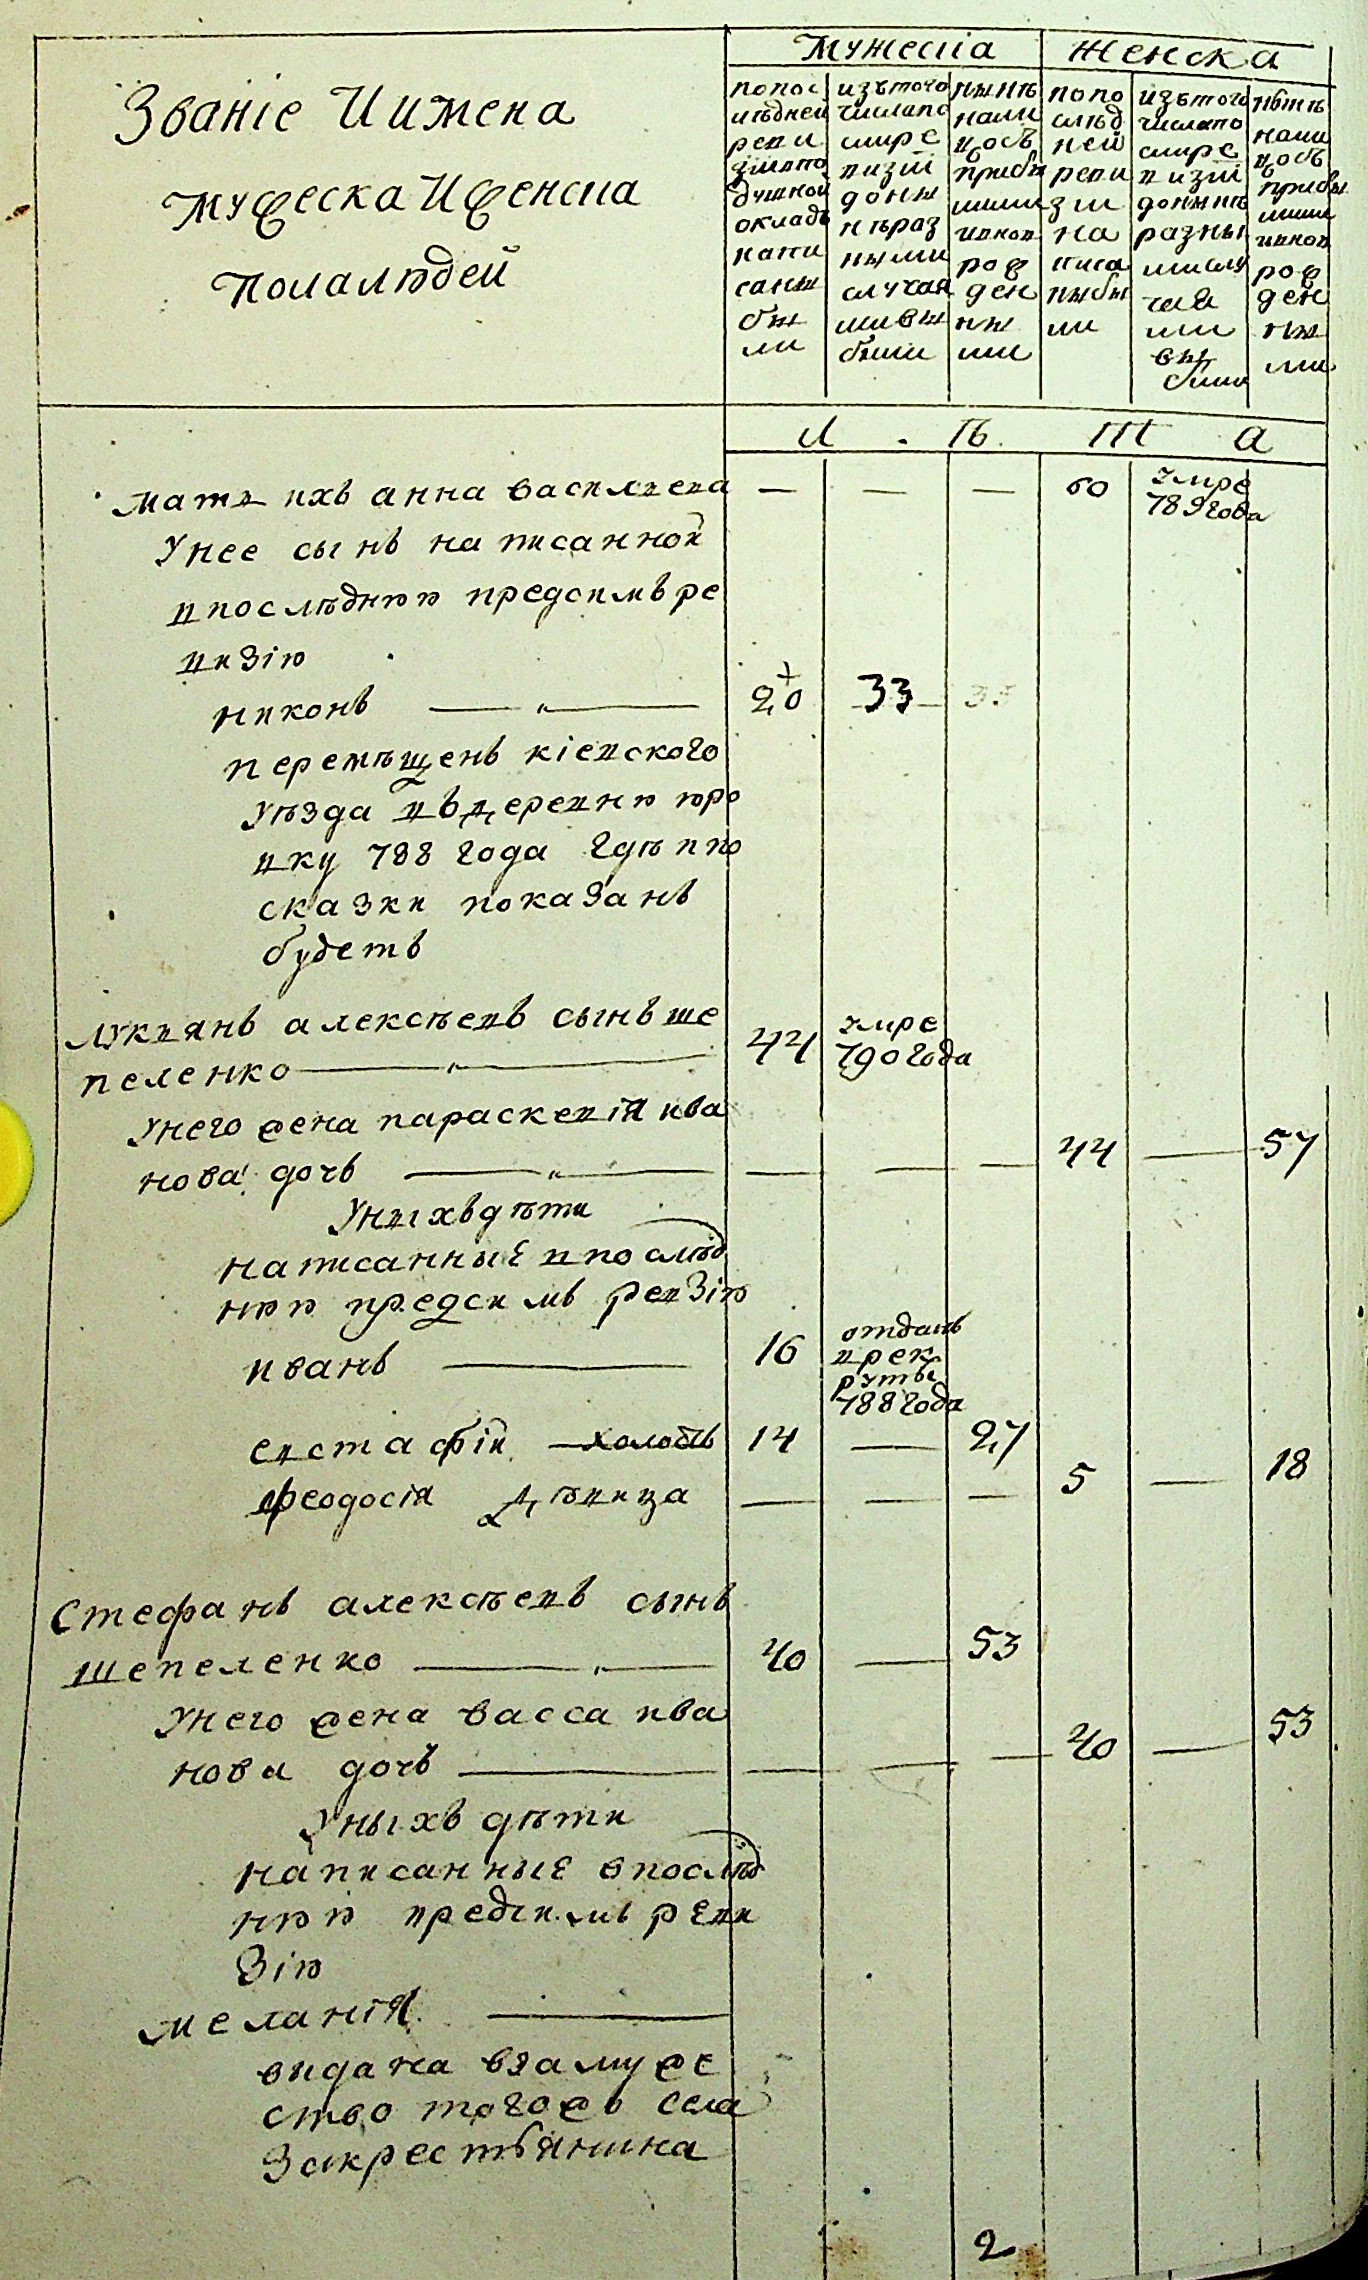 Званіе И имена
мужеска И женска
пола людей
мужеска
женска
по пос
лѣдней
реви
зіи по
душной
окладъ
напи
саны
бы
ли
изътого
числа по
слѣ ре
визіи
доны
нѣ раз
ными
случая
ми вы
были
нынѣ
нали
цо съ
прибы
лыми
и внов
рож
ден
ны
ми
по по
слѣд
ней
реви
зіи
на
писа
ны бы
ли
изътого
числа по
слѣ ре
визіи
донынѣ
разны
ми слу
чая
ми
вы
были
нынѣ
нали
цо съ
прибы
лыми
и внов
рож
ден
ны
ми
л ѣ т а
мать ихъ анна василиева — — — 60 умре
789 года
У нее сынъ написанной
в последнюю предсимъ ре
визію
никонъ 20 33
перемѣщенъ кіевского
уѣзда въ деревню юро
вку 788 года гдѣ и по
сказки показанъ
будетъ
Лукянъ алексѣевъ сынъ ше
пеленко 44 умре
790 года
У него жена параскевія ива
нова дочь — — — 44 — 57
У ныхъ дѣти
написанные в послѣд
нюю предсимъ ревзію
иванъ 16 отданъ
в рек
руты
788 года
евстафій холостъ 14 — 27
феодосія дѣвица — — — 5 — 18
Стефанъ алексѣевъ сынъ
шепеленко 40 — 53
У него жена васса ива
нова дочь — — — 40 — 53
У ныхъ дѣти
написанные в послѣд
нюю предсимъ реви
зію
меланія
видана взамуже
ство того жъ села
за крестьянина
2